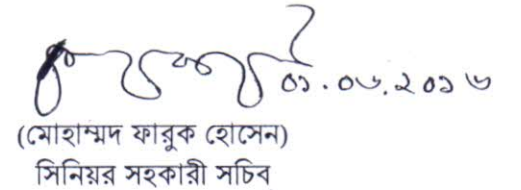 ০১.০৬.২০১৬
(মোহাম্মদ ফারুক হোসেন)
সিনিয়র সহকারী সচিব